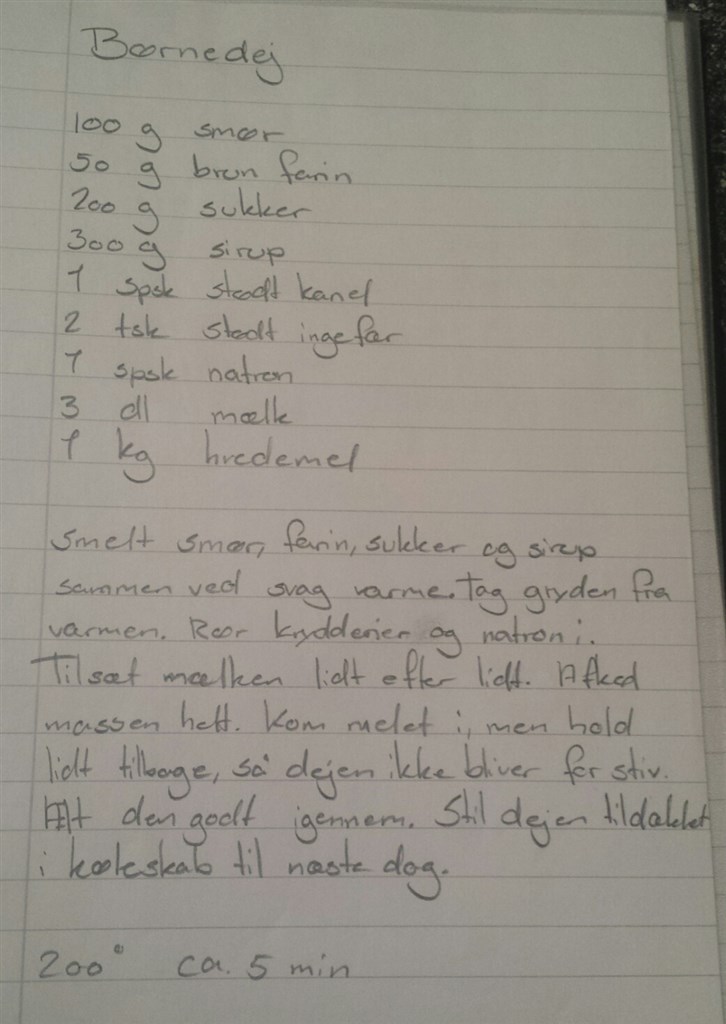 Børnedej
100 g smør
50 g brun farin
200 g sukker
300 g sirup
1 spsk stødt kanel
2 tsk stødt ingefær
1 spsk natron
3 dl mælk
1 kg hvedemel
Smelt smør, farin, sukker og sirup
sammen ved svag varme. Tag gryden fra
varmen. Rør krydderier og natron i.
Tilsæt mælken lidt efter lidt. Afkød
massen helt. Kom melet i, men hold
lidt tilbage, så dejen ikke bliver for stiv.
Ælt den godt igennem. Stil dejen tildækket
i køleskab til næste dag.
200° ca. 5 min